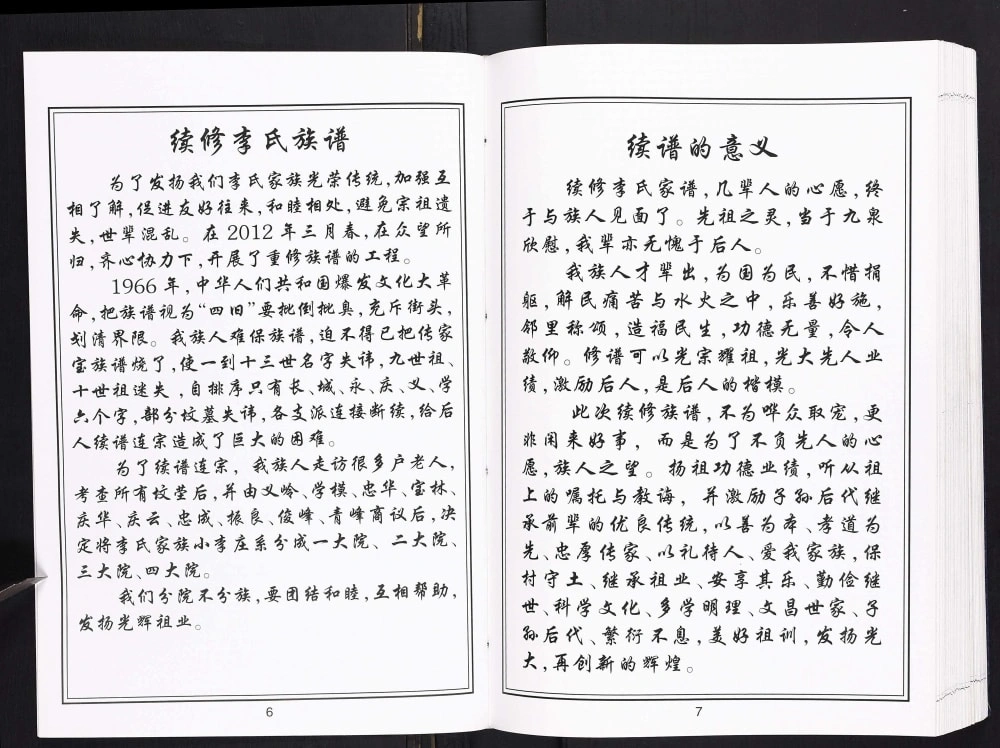 续修李氏族谱
为了发扬我们李氏家族光荣传统,加强互
相了解,促进友好往来,和睦相处,避免宗祖遗
失,世辈混乱。在2012年三月春,在众望所
归,齐心协力下,开展了重修族谱的工程。
1966年,中华人们共和国爆发文化大革
命,把族谱视为“四旧”要批倒批臭,充斥街头,
划清界限。我族人难保族谱,迫不得已把传家
宝族谱烧了,使一到十三世名字失讳,九世祖、
十世祖迷失,自排序只有长、城、永、庆、义、学
六个字,部分坟墓失讳,各支派连接断续,给后
人续谱连宗造成了巨大的困难。
为了续谱连宗,我族人走访很多户老人,
考查所有坟茔后,并由义岭、学模、忠华、宝林、
庆华、庆云、忠成、振良、俊峰、青峰商议后,决
定将李氏家族小李庄系分成一大院、二大院、
三大院、四大院。
我们分院不分族,要团结和睦,互相帮助,
发扬光辉祖业。
6
续谱的意义
续修李氏家谱,几辈人的心愿,终
于与族人见面了。先祖之灵,当于九泉
欣慰,我辈亦无愧于后人。
我族人才辈出,为国为民,不惜捐
躯,解民痛苦与水火之中,乐善好施,
邻里称颂,造福民生,功德无量,令人
敬仰。修谱可以光宗耀祖,光大先人业
绩,激励后人,是后人的楷模。
此次续修族谱,不为哗众取宠,更
非闲来好事,而是为了不负先人的心
愿,族人之望。扬祖功德业绩,听从祖
上的嘱托与教诲,并激励子孙后代继
承前辈的优良传统,以善为本、孝道为
先、忠厚传家、以礼待人、爱我家族,保
村守土、继承祖业、安享其乐、勤俭继
世、科学文化、多学明理、文昌世家、子
孙后代、繁衍不息,美好祖训,发扬光
大,再创新的辉煌。
7